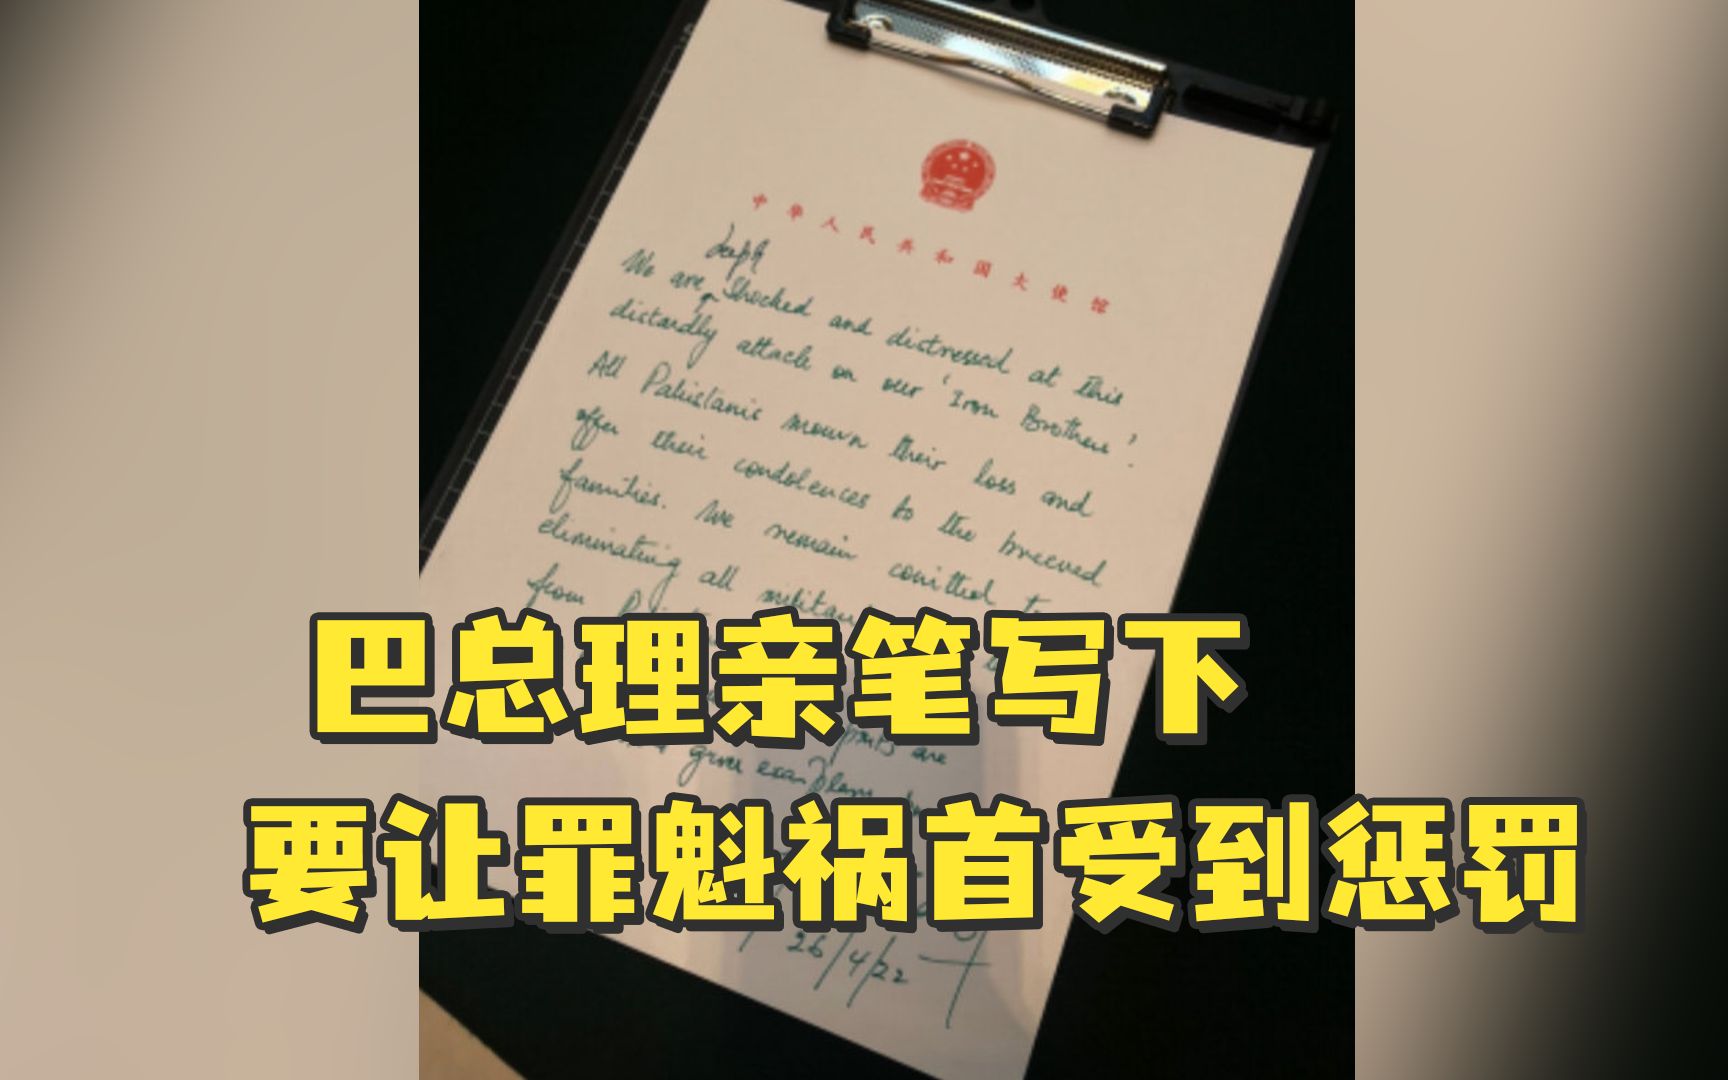 中华人民共和国大使馆
deeply
We are shocked and distressed at this
distardly attack on our 'Iron Brothers'.
All Pakistanis mourn their loss and
offer their condolences to the breeved
families. We remain comitted to
eliminating all militant
from
巴总理亲笔写下
are
given
要让罪魁祸首受到惩罚
26/4/22